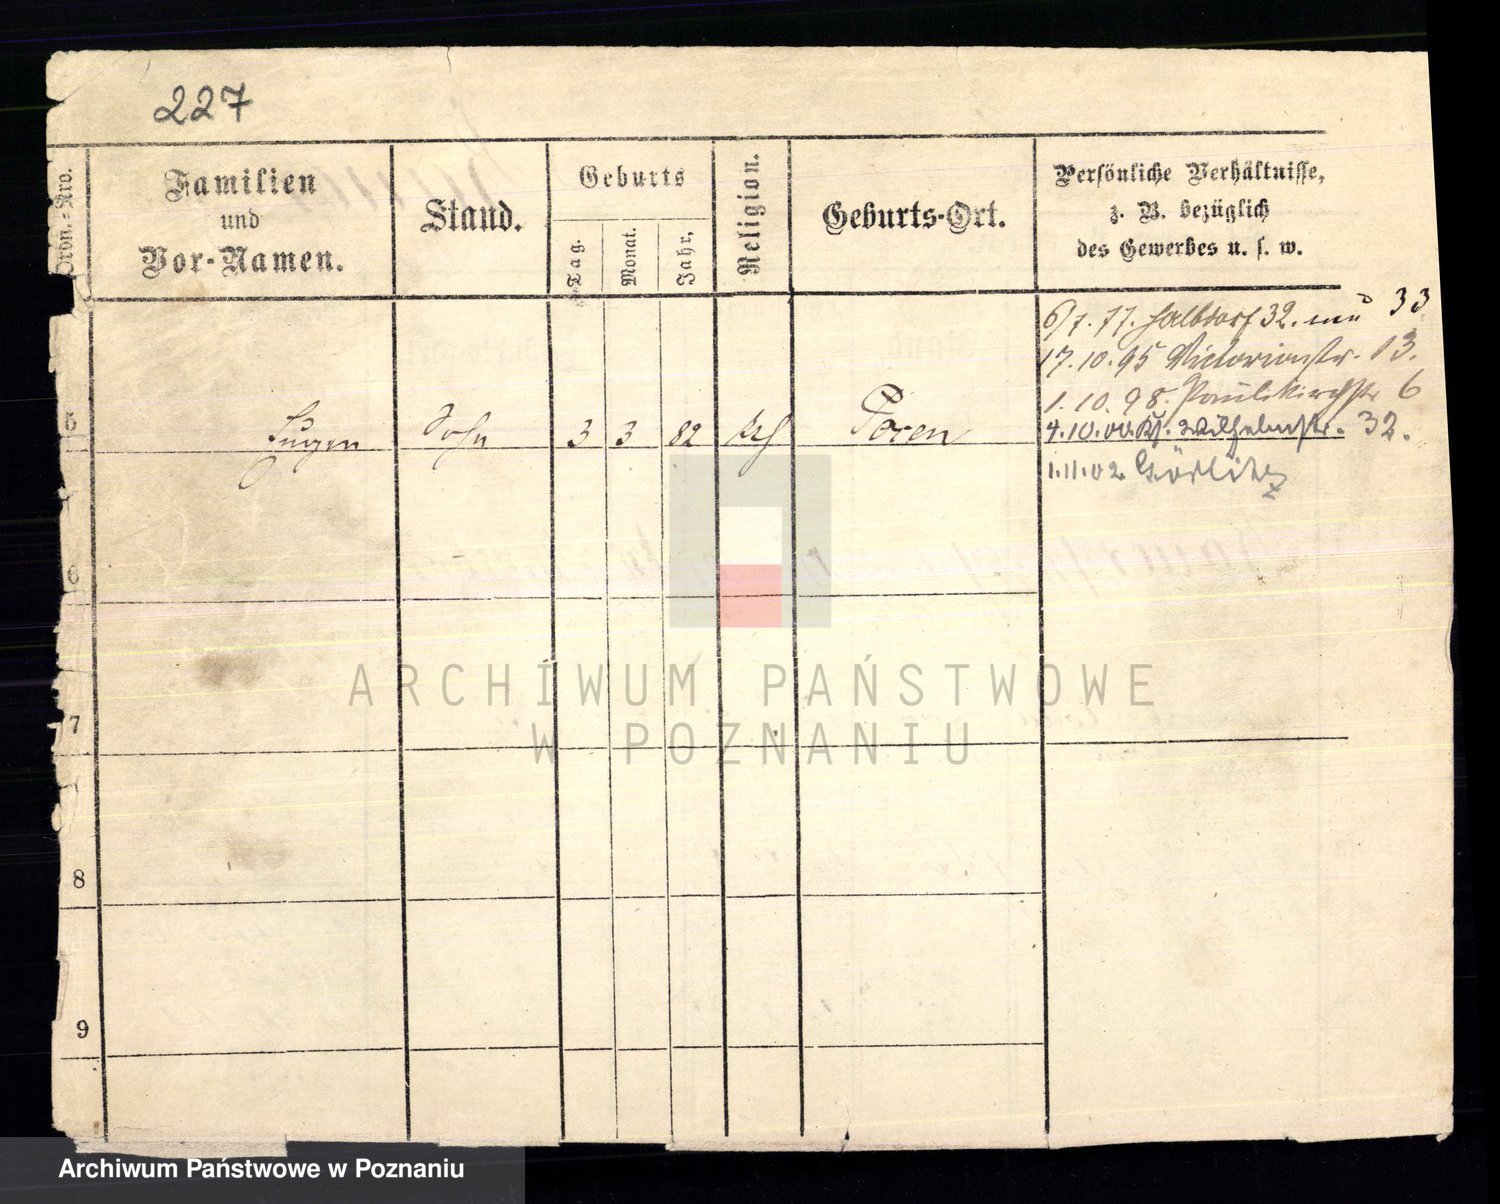 227
Ordn.=Nro.
Familien
und
Vor-Namen.
Stand.
Geburts
Tag.
Monat.
Jahr.
Religion.
Geburts-Ort.
Persönliche Verhältnisse,
z. B. bezüglich
des Gewerbes u. s. w.
6/7. 77. Halbdorf 32. 33
17.10.95 Victoriastr. 13.
1.10.98. Paulikirchstr 6
5 Eugen Sohn 3 3 82 Posen
4.10.00. Wilhelmstr. 32.
1.11.02 Görlitz
6
7
8
9
ARCHIWUM PAŃSTWOWE
W POZNANIU
Archiwum Państwowe w Poznaniu